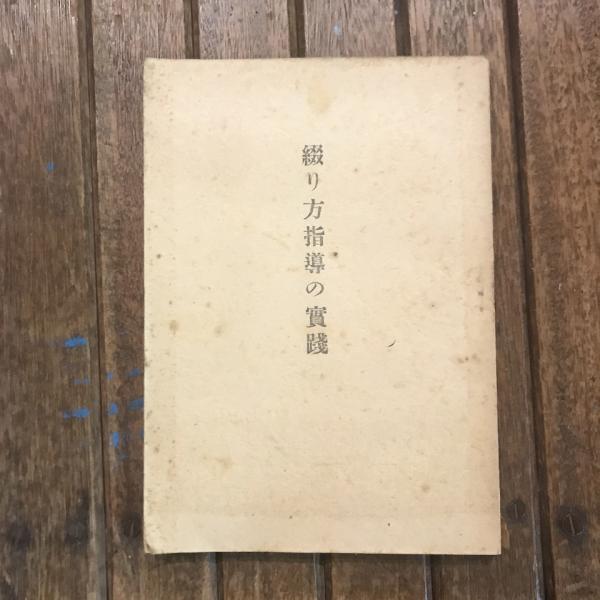 綴り方指導の實踐